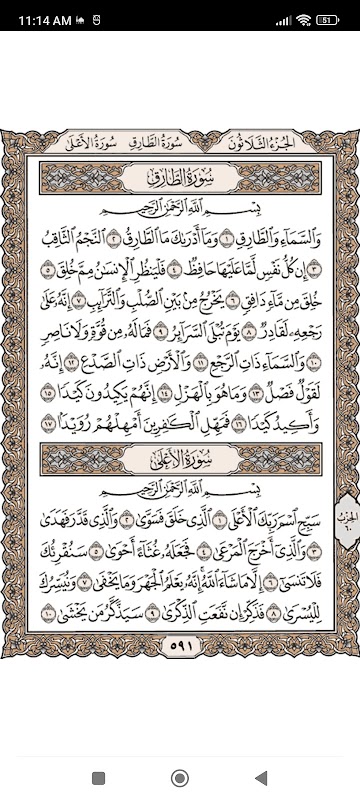 11:14 AM
51
الجزء الثلاثون سورة الطارق سورة الأعلى
سورة الطارق
بسم الله الرحمن الرحيم
وَالسَّمَاءِ وَالطَّارِقِ ١ وَمَا أَدْرَىٰكَ مَا الطَّارِقُ ٢ النَّجْمُ الثَّاقِبُ
٣ إِن كُلُّ نَفْسٍ لَّمَّا عَلَيْهَا حَافِظٌ ٤ فَلْيَنظُرِ الْإِنسَٰنُ مِمَّ خُلِقَ ٥
خُلِقَ مِن مَّاءٍ دَافِقٍ ٦ يَخْرُجُ مِن بَيْنِ الصُّلْبِ وَالتَّرَائِبِ ٧ إِنَّهُ عَلَىٰ
رَجْعِهِ لَقَادِرٌ ٨ يَوْمَ تُبْلَى السَّرَائِرُ ٩ فَمَا لَهُ مِن قُوَّةٍ وَلَا نَاصِرٍ
١٠ وَالسَّمَاءِ ذَاتِ الرَّجْعِ ١١ وَالْأَرْضِ ذَاتِ الصَّدْعِ ١٢ إِنَّهُ
لَقَوْلٌ فَصْلٌ ١٣ وَمَا هُوَ بِالْهَزْلِ ١٤ إِنَّهُمْ يَكِيدُونَ كَيْدًا ١٥
وَأَكِيدُ كَيْدًا ١٦ فَمَهِّلِ الْكَٰفِرِينَ أَمْهِلْهُمْ رُوَيْدًا ١٧
سورة الأعلى
بسم الله الرحمن الرحيم
سَبِّحِ اسْمَ رَبِّكَ الْأَعْلَى ١ الَّذِي خَلَقَ فَسَوَّىٰ ٢ وَالَّذِي قَدَّرَ فَهَدَىٰ
٣ وَالَّذِي أَخْرَجَ الْمَرْعَىٰ ٤ فَجَعَلَهُ غُثَاءً أَحْوَىٰ ٥ سَنُقْرِئُكَ
فَلَا تَنسَىٰ ٦ إِلَّا مَا شَاءَ اللَّهُ إِنَّهُ يَعْلَمُ الْجَهْرَ وَمَا يَخْفَىٰ ٧ وَنُيَسِّرُكَ
لِلْيُسْرَىٰ ٨ فَذَكِّرْ إِن نَّفَعَتِ الذِّكْرَىٰ ٩ سَيَذَّكَّرُ مَن يَخْشَىٰ ١٠
الحزب
٦٠
٥٩١